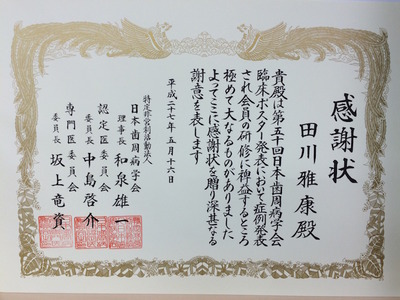 感謝状
田川雅康殿
貴殿は第五十回日本歯周病学会
臨床ポスター発表において症例発表
され会員の研修に裨益するところ
極めて大なるものがありました
よってここに感謝状を贈り深甚なる
謝意を表します
平成二十七年五月十六日
特定非営利活動法人
日本歯周病学会
理事長 和泉雄一
認定医委員会
委員長 中島啓介
専門医委員会
委員長 坂上竜資